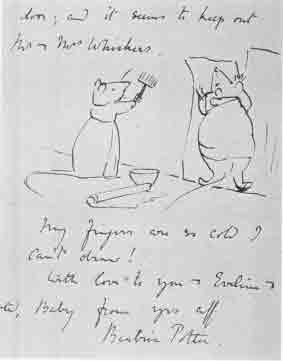 door; and it seems to keep out
Mr & Mrs Whiskers.
My fingers are so cold I
can't draw!
With love to you & Eveline &
Baby from yrs aff
Beatrix Potter.